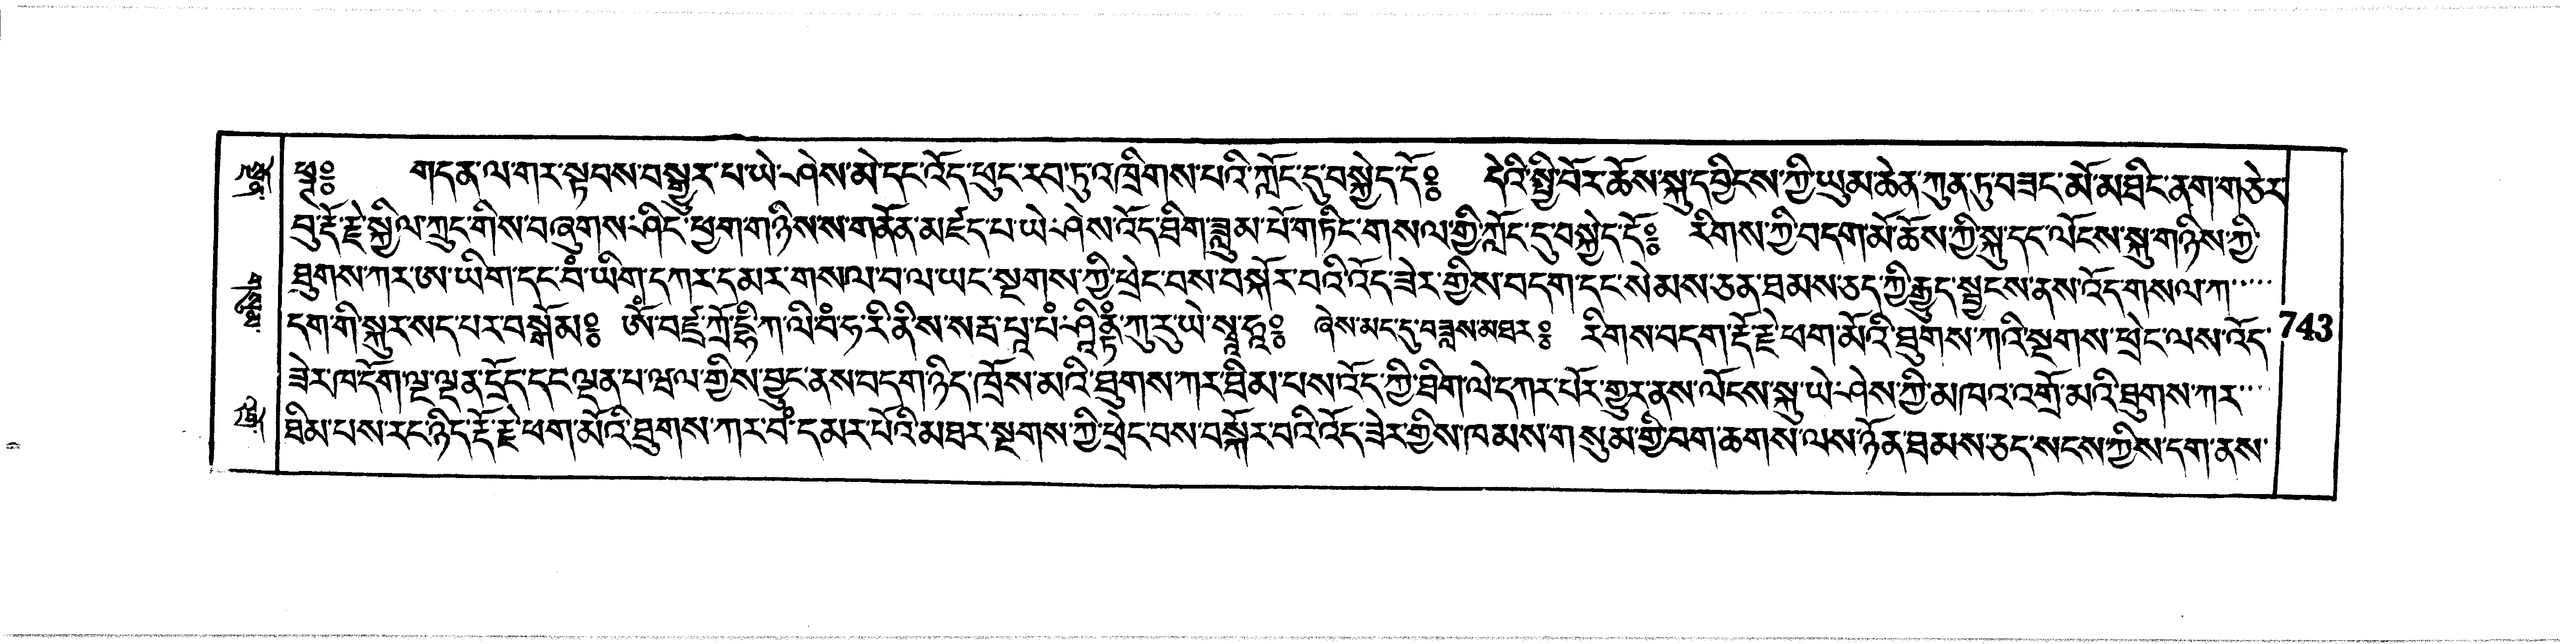 ཕཊ༔ གདན་ལ་གར་སྟབས་བསྒྱུར་པ་ཡེ་ཤེས་མེ་དང་འོད་ཕུང་རབ་ཏུ་འཁྲིགས་པའི་ཀློང་དུ་བསྐྱེད་དོ༔ དེའི་སྤྱི་བོར་ཆོས་སྐུ་དབྱིངས་ཀྱི་ཡུམ་ཆེན་ཀུན་ཏུ་བཟང་མོ་མཐིང་ནག་གཅེར་
བུ་རྡོ་རྗེ་སྐྱིལ་ཀྲུང་གིས་བཞུགས་ཤིང་ཕྱག་གཉིས་ས་གནོན་མཛད་པ་ཡེ་ཤེས་འོད་ཐིག་ཟླུམ་པོ་གཏིང་གསལ་གྱི་ཀློང་དུ་བསྐྱེད་དོ༔ རིགས་ཀྱི་བདག་མོ་ཆོས་ཀྱི་སྐུ་དང་ལོངས་སྐུ་གཉིས་ཀྱི་
ཐུགས་ཀར་ཨ་ཡིག་དང་བཾ་ཡིག་དཀར་དམར་གསལ་བ་ལ་ཡང་སྔགས་ཀྱི་ཕྲེང་བས་བསྐོར་བའི་འོད་ཟེར་གྱིས་བདག་དང་སེམས་ཅན་ཐམས་ཅད་ཀྱི་རྒྱུད་སྦྱངས་ནས་འོད་གསལ་ཀ་
དག་གི་སྐུར་སད་པར་བསྒོམ༔ ཨོཾ་བཛྲ་ཀྲོ་དྷི་ཀ་ལི་བཾ་ཧ་རི་ནི་ས་སརྦ་པཱ་པཾ་ཤཱནྟིཾ་ཀུ་རུ་ཡེ་སྭཱ་ཧཱ༔ ཞེས་མང་དུ་བཟླས་མཐར༔ རིགས་བདག་རྡོ་རྗེ་ཕག་མོའི་ཐུགས་ཀའི་སྔགས་ཕྲེང་ལས་འོད་
ཟེར་ཁ་དོག་ལྔ་ལྡན་དྲོད་དང་ལྡན་པ་ཝལ་གྱིས་བྱུང་ནས་བདག་ཉིད་ཁྲོས་མའི་ཐུགས་ཀར་ཐིམ་པས་འོད་ཀྱི་ཐིག་ལེ་དཀར་པོར་གྱུར་ནས་ལོངས་སྐུ་ཡེ་ཤེས་ཀྱི་མཁའ་འགྲོ་མའི་ཐུགས་ཀར་
ཐིམ་པས་རང་ཉིད་རྡོ་རྗེ་ཕག་མོའི་ཐུགས་ཀར་བཾ་དམར་པོའི་མཐར་སྔགས་ཀྱི་ཕྲེང་བས་བསྐོར་བའི་འོད་ཟེར་གྱིས་ཁམས་གསུམ་གྱི་བག་ཆགས་ལས་ཉོན་ཐམས་ཅད་སངས་ཀྱིས་དག་ནས་
743